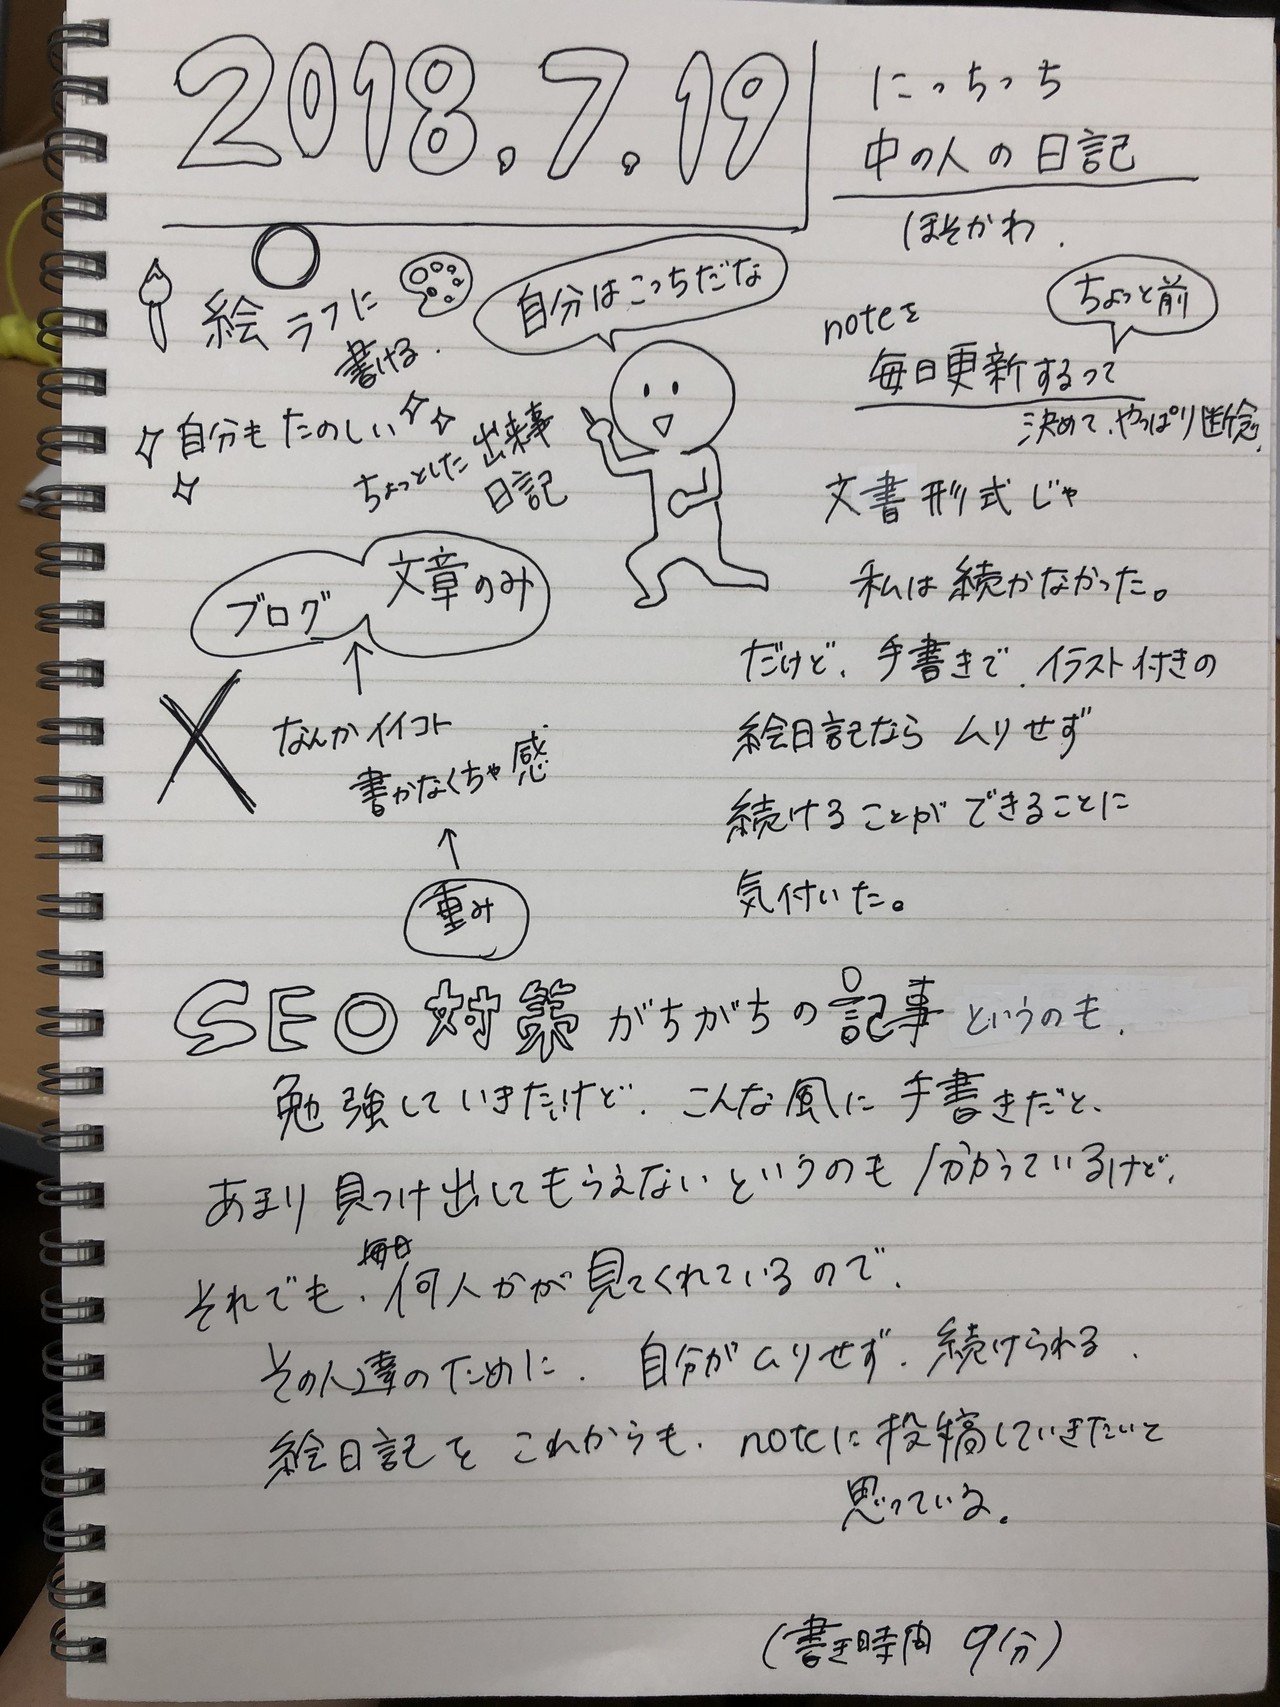 2018.7.19
にっちっち
中の人の日記
ほそかわ.
絵ラフに
書ける.
自分もたのしい
ちょっとした出来事
日記
自分はこっちだな
ちょっと前
noteを
毎日更新するって
決めて、やっぱり断念.
文書形式じゃ
私は続かなかった。
だけど、手書きで、イラスト付きの
絵日記なら ムリせず
続けることができることに
気付いた。
ブログ
文章のみ
↑
なんかイイコト
書かなくちゃ感
↑
重み
SEO対策がちがちの記事というのも、
勉強していきたいけど、こんな風に手書きだと、
あまり見つけ出してもらえないというのも分かっているけど、
毎日
それでも、何人かが見てくれているので、
その人達のために、自分がムリせず、続けられる、
絵日記をこれからも、noteに投稿していきたいと
思っている。
(書き時間 9分)